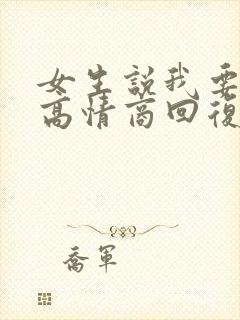 女生說我要
高情商回復
喬軍